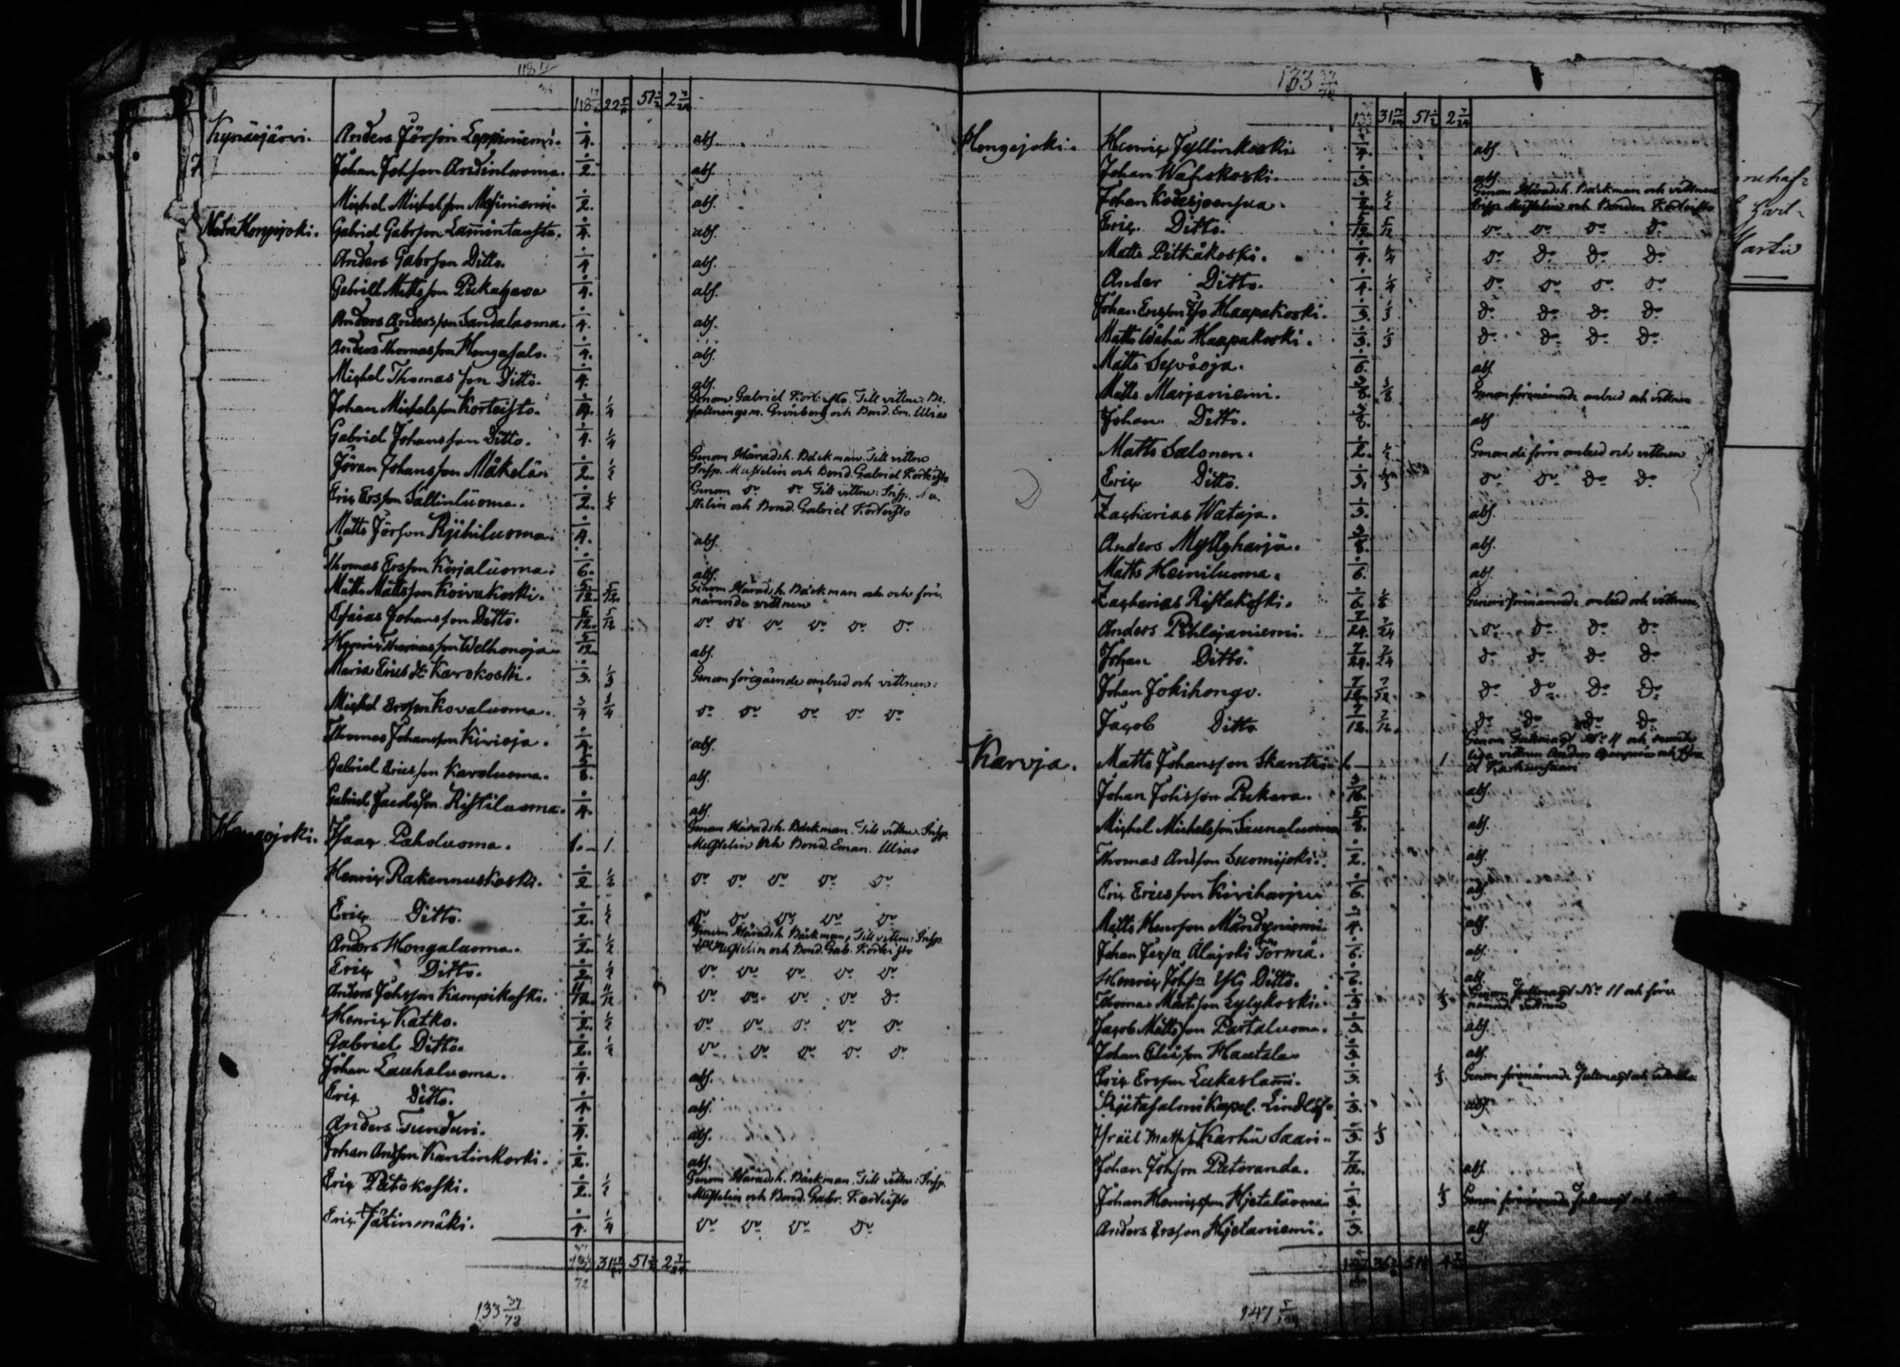 118 17/36
118 17/36 22 51 1/2 2 7/24
Kyrösjärvi. Anders Jörsson Leppiniemi. 1/4. abs.
7 Johan Johsson Andinluoma. 1/2. abs.
Michel Michelsson 1/2. abs.
Nedra Hongojoki. Gabriel Gabrsson Lamintausta. 1/4. abs.
Anders Gabrsson Ditto. 1/4 abs.
Gabriel Mattsson 1/4. abs.
Anders Andersson Sandaluoma. 1/4. abs.
Anders Thomasson Hongasalo. 1/4. abs.
Michel Thomasson Ditto. 1/4. abs.
Johan Michelsson Korteisto. 1/4. 1/4 Genom Gabriel Korteisto. Till vittne Be-
fallningsm. Grönberg och Bond. Em. Ulias
Gabriel Johansson Ditto. 1/4. 1/4
Jöran Johansson Mäkelän 1/2. 1/2 Genom Häradsh. Bäckman. Till vittne
Insp. Musselin och Bond. Gabriel Korteisto
Eric Ersson Sallinluoma. 1/2. 1/2 Genom do do Till vittne: Insp. Mu-
sselin och Bond. Gabriel Korteisto
Matts Jörsson Ryihiluoma. 1/4. abs.
Thomas Ersson Korjaluoma. 1/6. abs.
Matts Mattsson Koivukoski. 5/12. 5/12. Genom Häradsh. Bäckman och före-
nämnde vittnen
Esaias Johansson Ditto. 5/12. 5/12 do do do do do do
Henric Thomasson Welhonoja 5/12. abs.
Maria Ericsdr Karskoski. 1/3. 1/3 Genom föregående ombud och vittnen.
Michel Ersson Kovaluoma. 3/4 3/4 do do do do do
Thomas Johansson Kivioja. 1/4. abs.
Gabriel Ericsson Karoluoma. 5/8. abs.
Gabriel Jacobsson Ristiluoma. 1/4. abs.
Hongojoki. Isaac Paholuoma. 1. — 1. Genom Häradsh. Bäckman. Till vittne Insp.
Musselin och Bond. Eman. Ulias
Henric Rakennuskoski. 1/2 1/2 do do do do do
Eric Ditto. 1/2. 1/2 do do do do do
Anders Hongaluoma. 1/2. 1/2 Genom Häradsh. Bäckman, Till vittne: Insp.
Musselin och Bond. Gab. Korteisto
Eric Ditto. 1/2 1/2 do do do do do
Anders Johsson Kampikoski. 11/12. 11/12 do do do do do
Henric Katko. 1/2. 1/2 do do do do do
Gabriel Ditto. 1/2. 1/2 do do do do do
Johan Lauhaluoma. 1/4. abs.
Eric Ditto. 1/4 abs.
Anders Tunduri. 1/4. abs.
Johan Andsson Kantinkoski. 1/2. abs.
Eric Pätokoski. 1/2. 1/2 Genom Häradsh. Bäckman. Till vittne: Insp.
Musselin och Bond. Gabr. Korteisto
Eric Jätinmäki. 1/4. 1/4 do do do do
31 51 1/2 2 7/24
133 37/72
133 37/72
31 51 1/2 2 7/24
Hongojoki. Henric Jyllinkoski 1/4. abs.
Johan Wahokoski. 1/3. abs.
Johan Kodesjoensuu. 1/2. 1/2 Genom Häradsh. Bäckman och vittnen
Insp. Musselin och Bonden Korteisto
Eric Ditto. 5/12 5/12 do do do do
Matts Pitkäkoski. 1/4. 1/4 do do do do
Ander Ditto. 1/4. 1/4 do do do do
Johan Ersson Iso Haapakoski. 1/3. 1/3 do do do do
Matts Wähä Haapakoski. 1/3. 1/3 do do do do
Matts Syväoja. 1/6. abs.
Matts Marjaniemi. 3/8. 3/8 Genom förenämnde ombud och vittnen
Johan Ditto. 3/8. abs
Matts Salonen. 1/2. 1/2 Genom de förra ombud och vittnen
Eric Ditto. 1/3. 1/3 do do do do
Zacharias Wataja. 1/3. abs.
Anders Myllyharju. 3/8. abs.
Matts Heiniluoma. 1/6. abs.
Zacharias Ristakoski. 1/6. 1/6 Genom förenämnde ombud och vittnen
Anders Pihlajaniemi. 7/24. 7/24 do do do do
Johan Ditto. 7/24. 7/24 do do do do
Johan Jokihongo. 7/12. 7/12. do do do do
Jacob Ditto 7/12. 7/12. do do do do
Karvja. Matts Johansson Skantzi 1. — 1 Genom Fullmagt No 11 och
vittnen Anders
Karhunsaari
Johan Johsson Pukara. 3/16. abs.
Michel Michelsson Saunaluoma 5/8. abs.
Thomas Andsson Suomijoki. 1/2. abs.
Eric Ericsson Kiviharju 1/6. abs.
Matts Henrsson Mändyniemi 3/4. abs.
Johan Alajoki Törmä. 1/6. abs.
Henric Johsson Yli Ditto. 1/6. abs.
Thomas Mattsson Lylykoski. 1/3. 1/3 Genom Fullmagt No 11 och före-
nämnde vittnen
Jacob Mattsson Partaluoma. 1/3. abs.
Johan Eliasson Hautala 1/3. abs.
Eric Ersson Lukaslami. 1/3. 1/3 Genom förenämnde Fullmagt och vittnen
Kapel. Lindlöf 1/3. abs.
Israël Mattss. Karhu Saari. 1/3. 1/3
Johan Johsson Patoranda. 7/12. abs.
Johan Henricsson Hjetaluoma 1/3. 1/3 Genom förenämnde Fullmagt och
Anders Ersson Hjetaniemi. 1/3. abs.
147